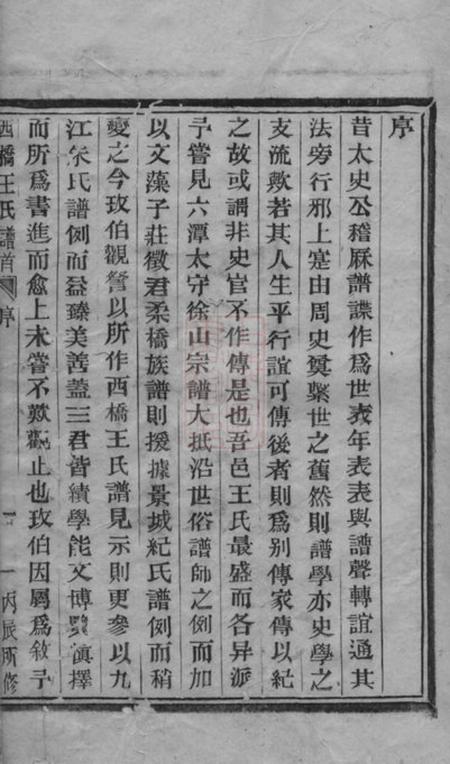 序
昔太史公稽厤譜諜作爲世表年表表與譜聲轉誼通其
法旁行邪上寔由周史奠繫世之舊然則譜學亦史學之
支流歟若其人生平行誼可傳後者則爲別傳家傳以紀
之故或謂非史官不作傳是也吾邑王氏最盛而各异派
予嘗見六潭太守徐山宗譜大抵沿世俗譜師之例而加
以文藻子莊徵君柔橋族譜則援據景城紀氏譜例而稍
變之今玫伯觀詧以所作西橋王氏譜見示則更參以九
江朱氏譜例而益臻美善蓋三君皆績學能文博覽愼擇
而所爲書進而愈上未嘗不歎觀止也玫伯因屬爲敘予
西橋王氏譜首 序 一 丙辰所修